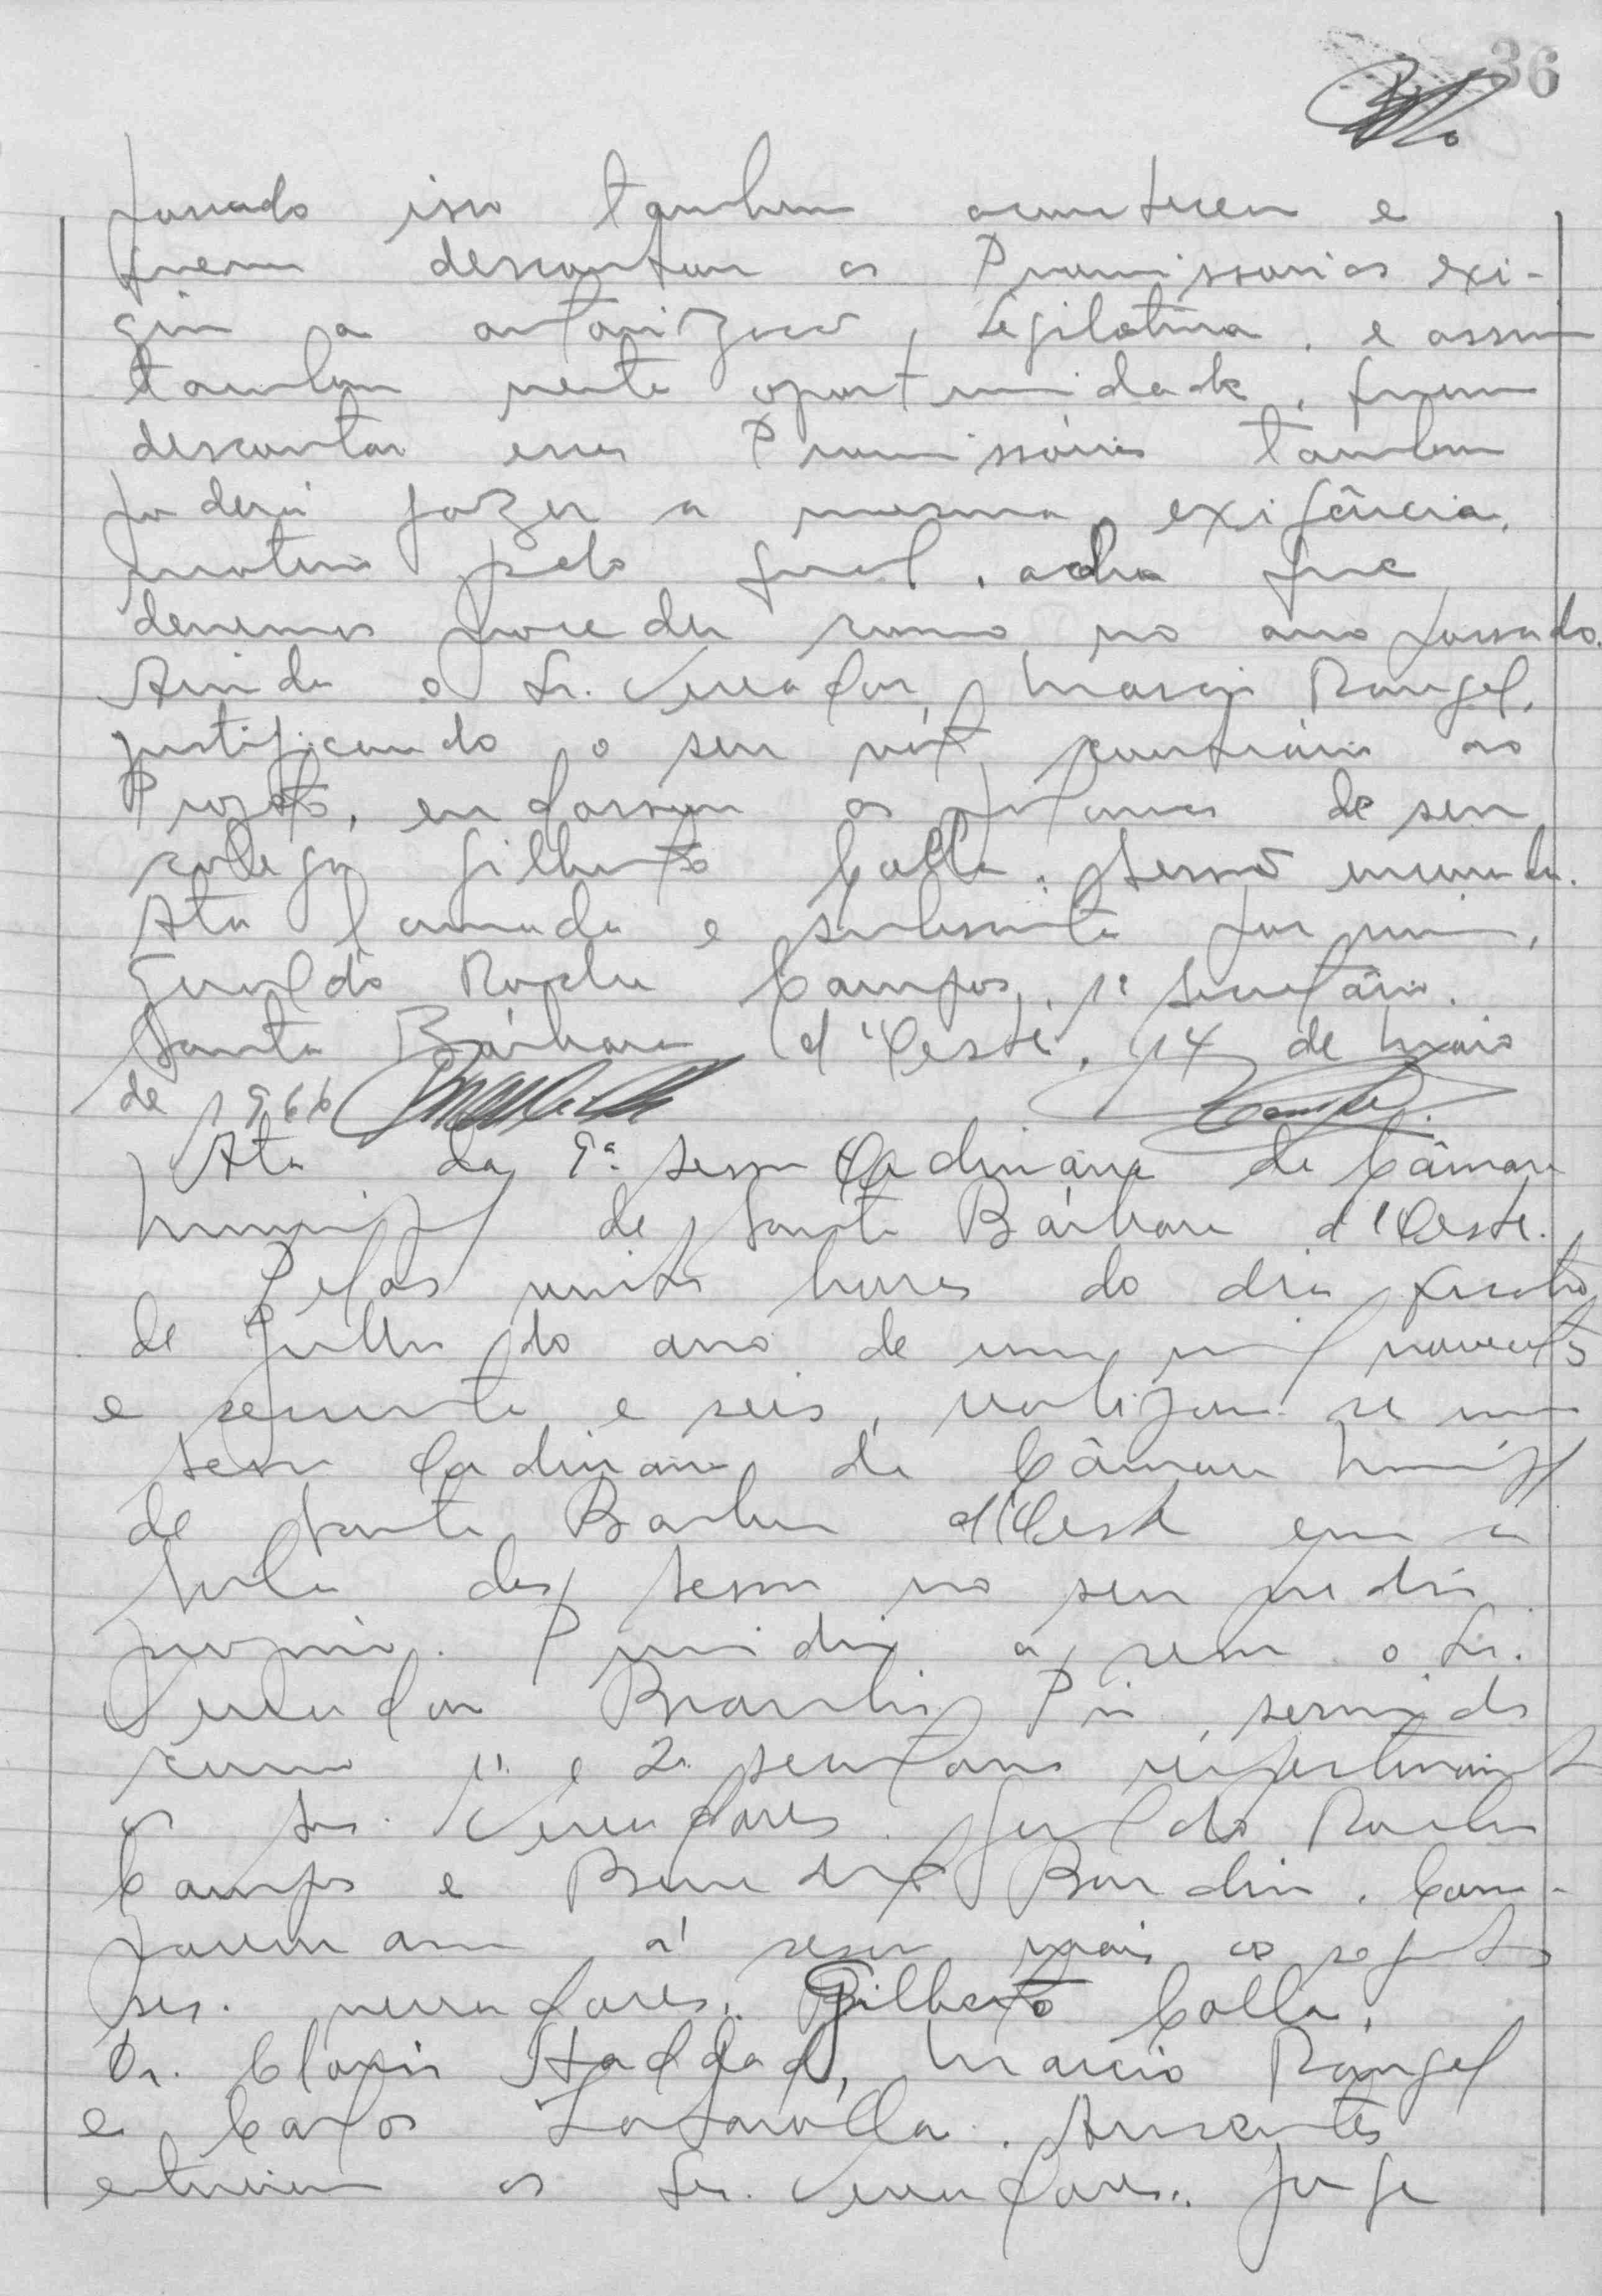 36
passado isso tambem aconteceu e
quem descontou as Promissorias exi-
giu a autorização Legilativa, e assim
tambem nesta oportunidade, quem
descontar essas Promissórias tambem
poderá fazer a mesma exigência,
motivo pelo qual, acha que
devemos proceder como no ano passado.
Ainda o Sr. Vereador Marcio Rangel,
justificando o seu voto contrário ao
Projeto, endossou as palavras de seu
colega Gilberto Colla. Sessão encerrada.
Ata lavrada e subscrita por mim,
Geraldo Rocha Campos, 1º Secretário.
Santa Bárbara d'Oeste, 14 de Maio
de 1966
Ata da 9ª. sessão Ordinária da Câmara
Municipal de Santa Bárbara d'Oeste.
Pelas vinte horas do dia quatro
de Julho do ano de um mil novecentos
e sessenta e seis, realizou-se uma
sessão Ordinaria da Câmara Municipal
de Santa Barbara d'Oeste em a
Sala das sessões no seu predio
proprio. Presidiu a sessão o Sr.
Vereador Braulio Pio, servindo
como 1º e 2º secretarios respectivamente
os Srs. Vereadores Geraldo Rocha
Campos e Benedito Bordin. Com-
pareceram á sessão mais os seguintes
srs. vereadores: Gilberto Colla,
Dr. Clovis Haddad, Marcio Rangel
e Carlos Ausentes
estiveram os Srs. Vereadores: Jorge